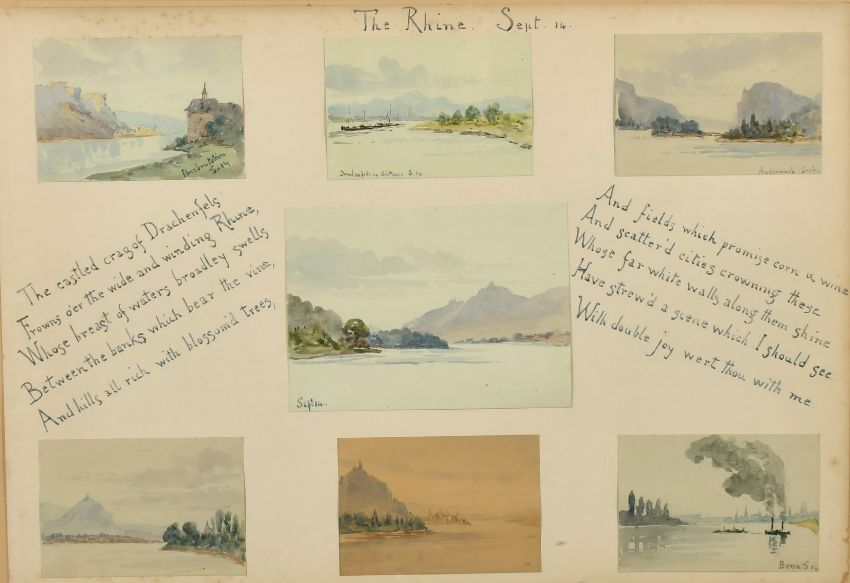 The Rhine. Sept. 14.
Sept. 14
Drachenfels in distance S. 14.
Andernach. Sept.
The castled crag of Drachenfels
Frowns oer the wide and winding Rhine,
Whose breast of waters broadley swells
Between the banks which bear the vine,
And hills all rich with blossom'd trees,
And fields which promise corn & wine
And scatter'd cities crowning these
Whose far white walls along them shine
Have strew'd a scene which I should see
With double joy wert thou with me
Sept 14.
Bonn. S. 14